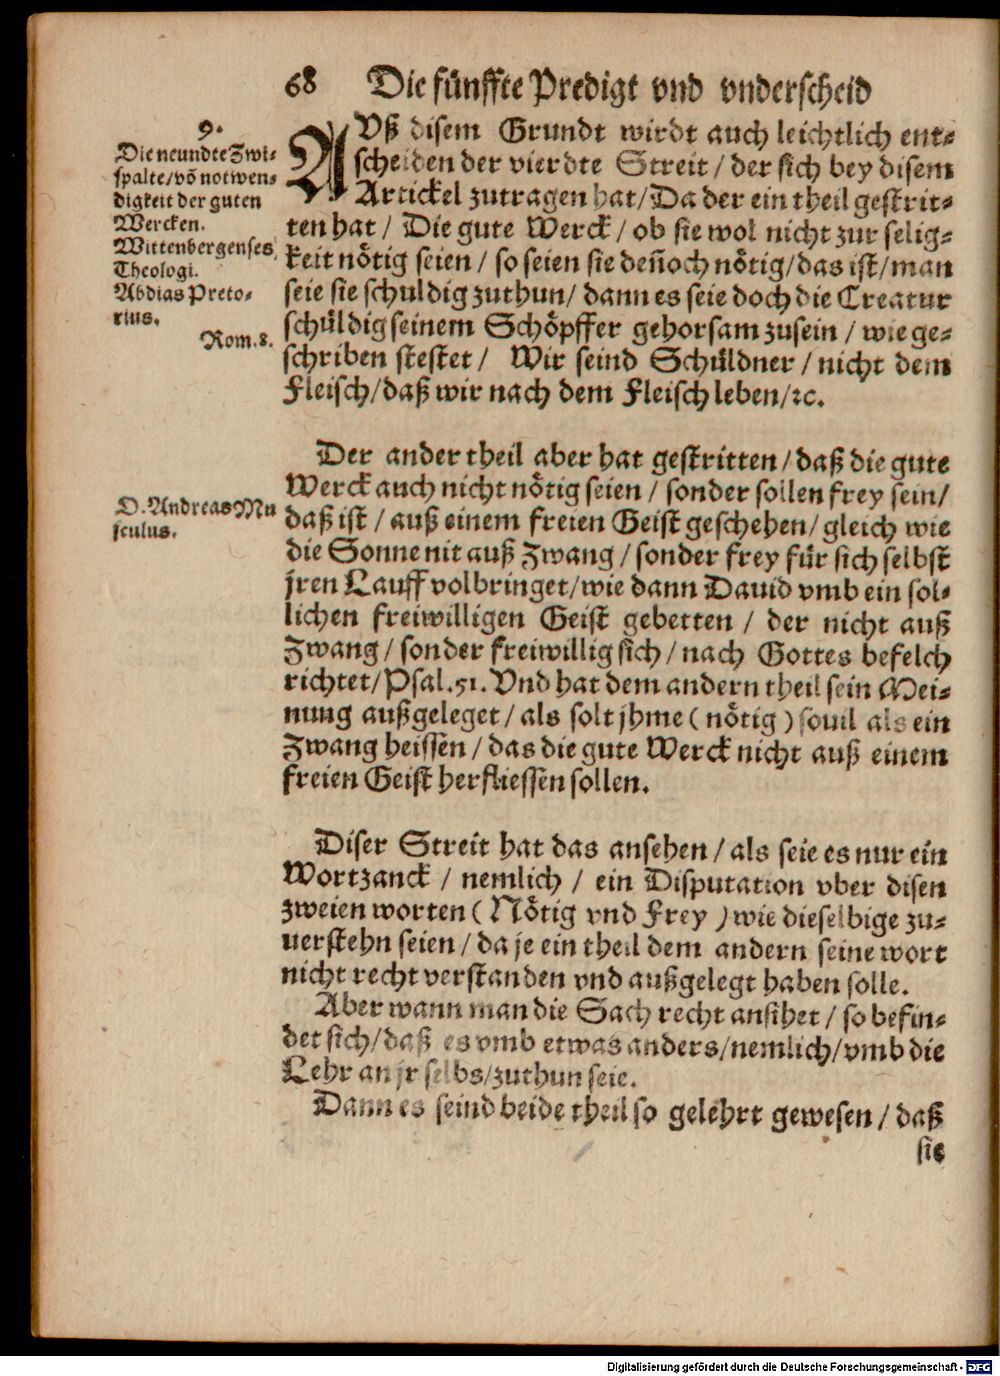 68 Die fünffte Predigt vnd vnderscheid
9.
Die neundte Zwi-
spalte/võ notwen-
digkeit der guten
Wercken.
Wittenbergenses
Theologi.
Abdias Preto-
rius.
Rom. 8.
AVß disem Grundt wirdt auch leichtlich ent-
scheiden der vierdte Streit / der sich bey disem
Artickel zutragen hat/Da der ein theil gestrit-
ten hat / Die gute Werck / ob sie wol nicht zur selig-
keit nötig seien / so seien sie deñoch nötig/das ist/man
seie sie schuldig zuthun/ dann es seie doch die Creatur
schüldig seinem Schöpffer gehorsam zusein / wie ge-
schriben stestet / Wir seind Schüldner / nicht dem
Fleisch/daß wir nach dem Fleisch leben/ꝛc.
Der ander theil aber hat gestritten/daß die gute
Werck auch nicht nötig seien / sonder sollen frey sein/
D. Andreas Mu
sculus.
daß ist / auß einem freien Geist geschehen/gleich wie
die Sonne nit auß Zwang / sonder frey für sich selbst
jren Lauff volbringet/wie dann Dauid vmb ein sol-
lichen freiwilligen Geist gebetten / der nicht auß
Zwang / sonder freiwillig sich / nach Gottes befelch
richtet/Psal.51. Vnd hat dem andern theil sein Mei-
nung außgeleget/als solt jhme ( nötig ) souil als ein
Zwang heissen / das die gute Werck nicht auß einem
freien Geist herfliessen sollen.
Diser Streit hat das ansehen / als seie es nur ein
Wortzanck / nemlich / ein Disputation vber disen
zweien worten ( Nötig vnd Frey ) wie dieselbige zu-
uerstehn seien / da je ein theil dem andern seine wort
nicht recht verstanden vnd außgelegt haben solle.
Aber wann man die Sach recht ansihet / so befin-
det sich/daß es vmb etwas anders/nemlich/vmb die
Lehr an jr selbs/zuthun seie.
Dann es seind beide theil so gelehrt gewesen / daß
sie
Digitalisierung gefördert durch die Deutsche Forschungsgemeinschaft - DFG